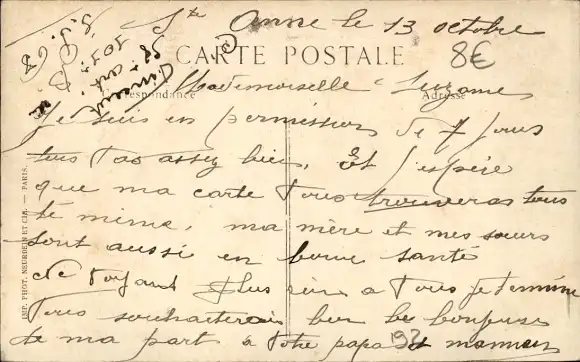 Ste Anne le 13 octobre
8€
CARTE POSTALE
Mademoiselle Suzanne
Correspondance
Adresse
Je suis en permission de 7 jours
assez bien. Et j'espère
que ma carte vous trouveras tous
de même, ma mère et mes sœurs
sont aussi en bonne santé
Ne voyant plus rien a vous je termine
Vous souhaiterais bien le bonjour
de ma part à votre papa et maman
92
IMP. PHOT. NEURDEIN ET CIE. — PARIS.